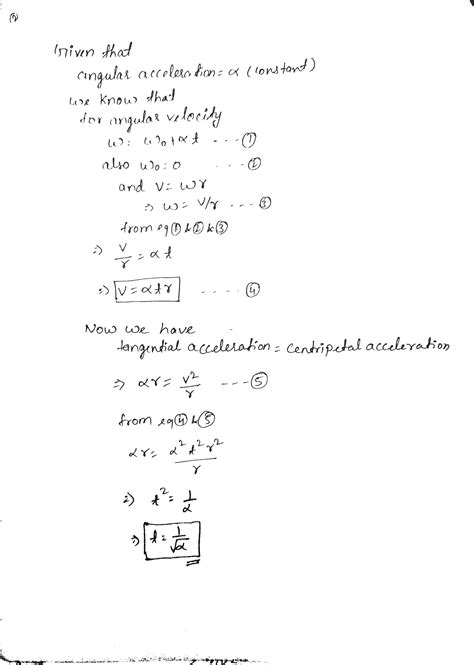 Given that
angular acceleration = α (constant)
we know that
for angular velocity
ω = ω₀ + αt --- ①
also ω₀ = 0 --- ②
and v = ωr
⇒ ω = v/r --- ③
from eq ① & ② & ③
⇒ v/r = αt
⇒ v = αtr ---- ④
Now we have
tangential acceleration = centripetal acceleration
⇒ αr = v²/r --- ⑤
from eq ④ & ⑤
αr = α²t²r²/r
⇒ t² = 1/α
⇒ t = 1/√α